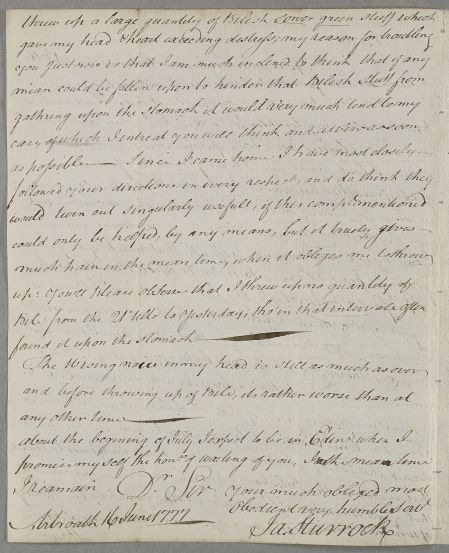 threw up a large quantity of Bilish Sower green stuff which
gave my head & heart exceeding distress; my reason for troubling
you just now is that I am much inclined to think that if any
mean could be fallen upon to hinder that Bilish Stuff from
gathring upon the Stomach it would very much tend to my
ease of which I intreat you will think and write as soon
as possible — Since I came home I have most closely
followed your directions in every respect, and do think they
would turn out singularly usefull, if this compt. mentioned
could only be helped, by any means, but it truely gives
much pain in the mean time, when it obliges me to throw
up: you'll please observe that I threw up no quantity of
Bile from the 21 Ult. to yesterday, tho' in that intervale often
found it upon the Stomach —
The noise in my head is still as much as ever
and before throwing up of Bile, its rather worse than at
any other time —
about the begening of July I expect to be in Edinr. when I
promise my self the honr. of waiting of you, In the mean time
I reamain Dr. Sir your much obliged most
Obedient very humble Servt.
Arbroath 16 June 1777
Ja: Sturrock